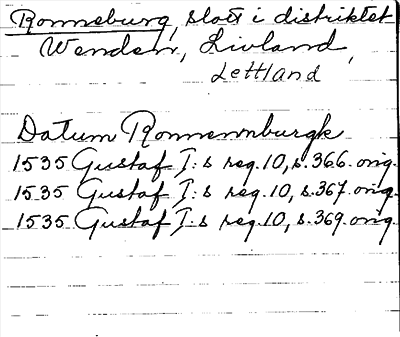 Ronneburg, slott i distriktet
Wenden, Livland,
Lettland
Datum Ronnennburgk
1535 Gustaf I:s reg. 10, s. 366. orig.
1535 Gustaf I:s reg. 10, s. 367. orig.
1535 Gustaf I:s reg. 10, s. 369. orig.